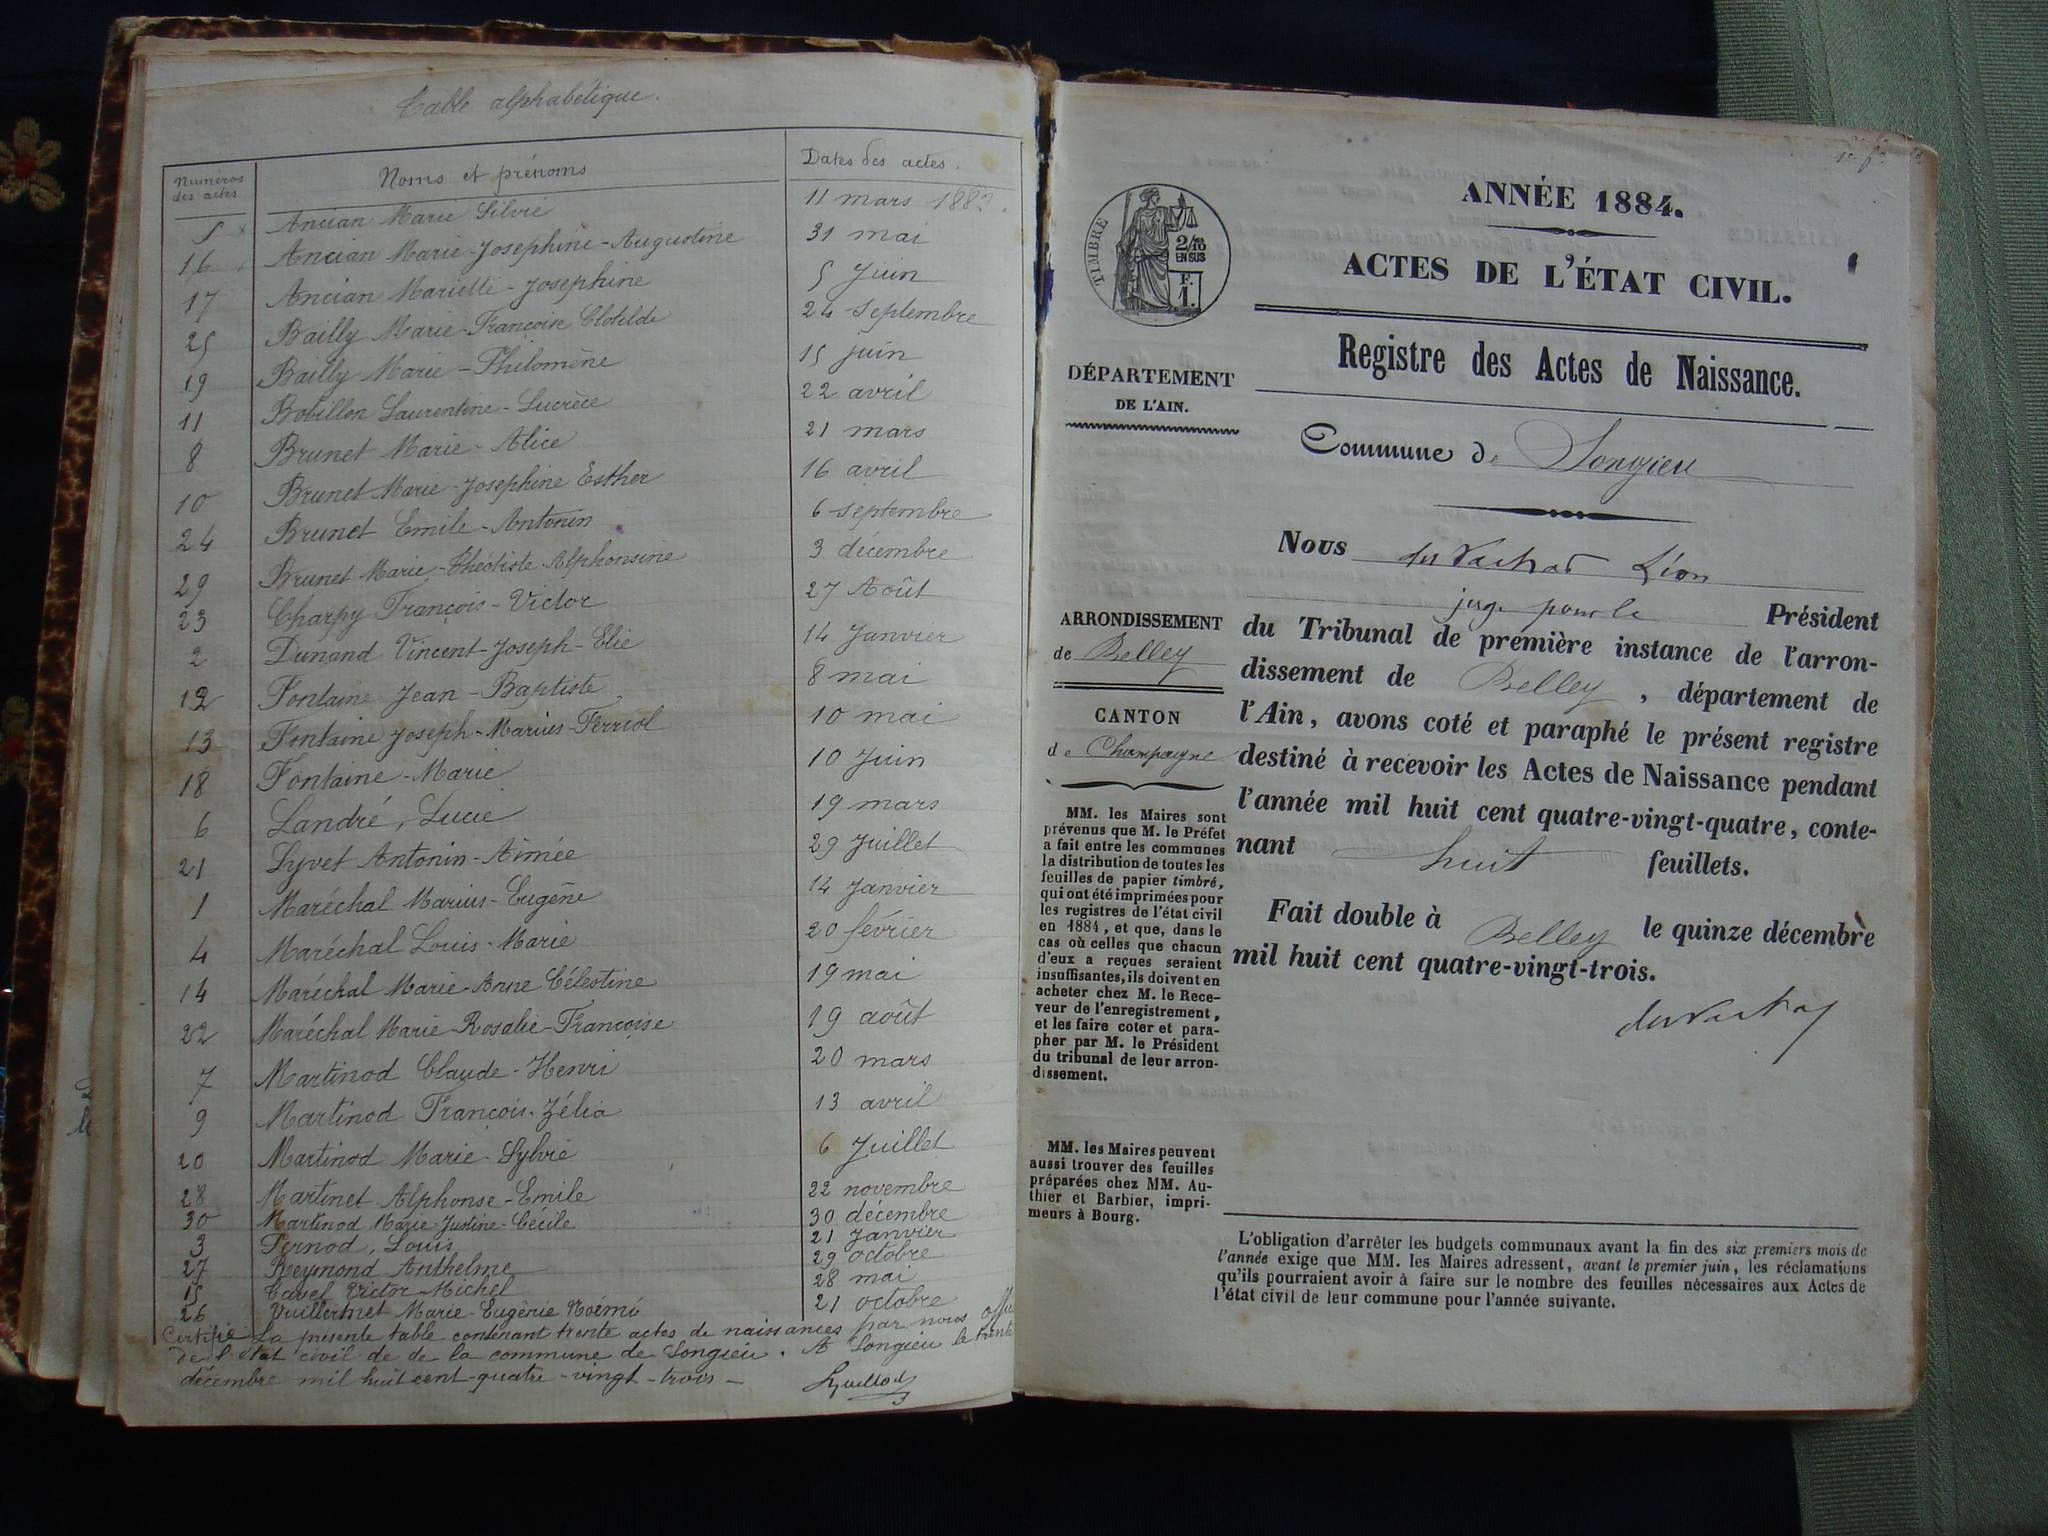 Table alphabétique.
Numéros des actes Noms et prénoms Dates des actes.
5 Ancian Marie Silvie 11 mars 1883.
16 Ancian Marie-Josephine-Augustine 31 mai
17 Ancian Mariette-Josephine 5 Juin
25 Bailly Marie-Françoise Clotilde 24 Septembre
19 Bailly Marie-Philomène 15 juin
11 Bobillon Laurentine-Lucrèce 22 avril
8 Brunet Marie-Alice 21 mars
10 Brunet Marie-Josephine Esther 16 avril
24 Brunet Emile-Antonin 6 septembre
29 Brunet Marie-Théotiste-Alphonsine 3 décembre
23 Charpy François-Victor 27 Août
2 Dunand Vincent-Joseph-Elie 14 Janvier
12 Fontaine Jean-Baptiste 8 mai
13 Fontaine Joseph-Marius-Ferriol 10 mai
18 Fontaine-Marie 10 Juin
6 Landré, Lucie 19 mars
21 Lyvet Antonin-Aimée 29 Juillet
1 Maréchal Marius-Eugène 14 Janvier
4 Maréchal Louis-Marie 20 février
14 Maréchal Marie-Anne Célestine 19 mai
22 Maréchal Marie-Rosalie-Françoise 19 août
7 Martinod Claude-Henri 20 mars
9 Martinod François-Zélia 13 avril
20 Martinod Marie-Sylvie 6 Juillet
28 Martinet Alphonse-Emile 22 novembre
30 Martinod Marie Justine-Cécile 30 décembre
3 Pernod, Louis 21 Janvier
27 Reymond Anthelme 29 octobre
15 Tavel Victor-Michel 28 mai
26 Vuillermet Marie-Eugènie Noémi 21 octobre
Certifié La présente table contenant trente actes de naissances par nous
de l'état civil de de la commune de Songieu. A Songieu le trente
décembre mil huit cent-quatre-vingt-trois-
TIMBRE
2/10
EN SUS
F.
1.
ANNÉE 1884.
ACTES DE L'ÉTAT CIVIL.
Registre des Actes de Naissance.
DÉPARTEMENT
DE L'AIN.
Commune de Songieu
Nous Léon
juge pour le Président
ARRONDISSEMENT
de Belley
CANTON
de Champagne
du Tribunal de première instance de l'arron-
dissement de Belley, département de
l'Ain, avons coté et paraphé le présent registre
destiné à recevoir les Actes de Naissance pendant
l'année mil huit cent quatre-vingt-quatre, conte-
nant huit feuillets.
Fait double à Belley le quinze décembre
mil huit cent quatre-vingt-trois.
MM. les Maires sont
prévenus que M. le Préfet
a fait entre les communes
la distribution de toutes les
feuilles de papier timbré,
qui ont été imprimées pour
les registres de l'état civil
en 1884, et que, dans le
cas où celles que chacun
d'eux a reçues seraient
insuffisantes, ils doivent en
acheter chez M. le Rece-
veur de l'enregistrement,
et les faire coter et para-
pher par M. le Président
du tribunal de leur arron-
dissement.
MM. les Maires peuvent
aussi trouver des feuilles
préparées chez MM. Au-
thier et Barbier, impri-
meurs à Bourg.
L'obligation d'arrêter les budgets communaux avant la fin des six premiers mois de
l'année exige que MM. les Maires adressent, avant le premier juin, les réclamations
qu'ils pourraient avoir à faire sur le nombre des feuilles nécessaires aux Actes de
l'état civil de leur commune pour l'année suivante.